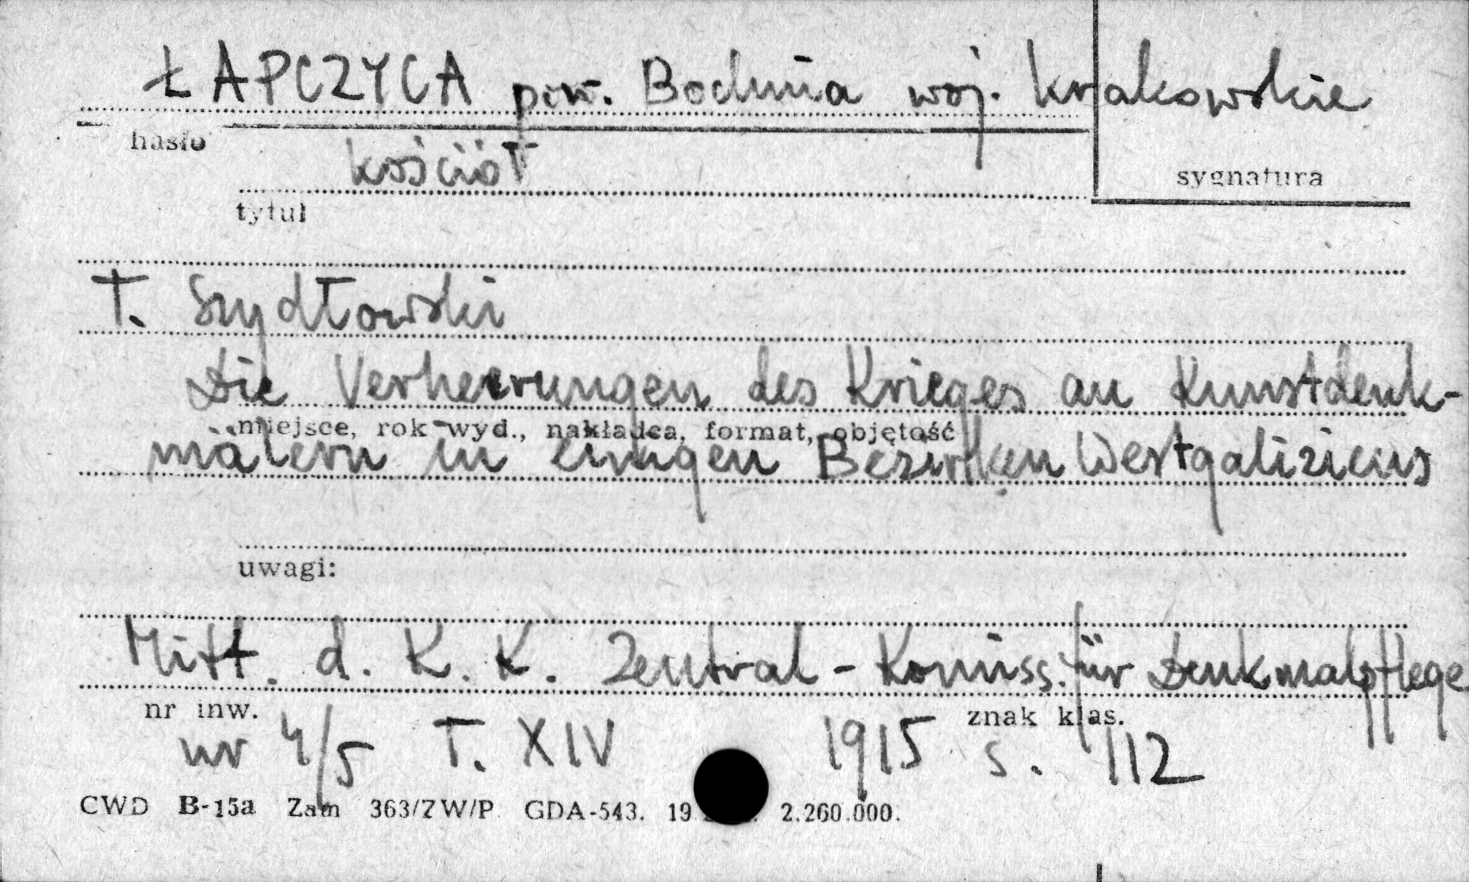 ŁAPCZYCA pow. Bochnia woj. Krakowskie
hasło
kościół
sygnatura
tytuł
T. Szydłowski
Die Verheerungen des Krieges an Kunstdenk-
miejsce, rok wyd., nakładca, format, objętość
mälern in einigen Bezirken Westgaliziens
uwagi:
Mitt. d. K. K. Zentral-Komiss. für Denkmalpflege
nr inw.
znak klas.
nr 4/5 T. XIV 1915 s. 112
CWD B-15a Zam 363/7W/P GDA-543. 19 2.260.000.